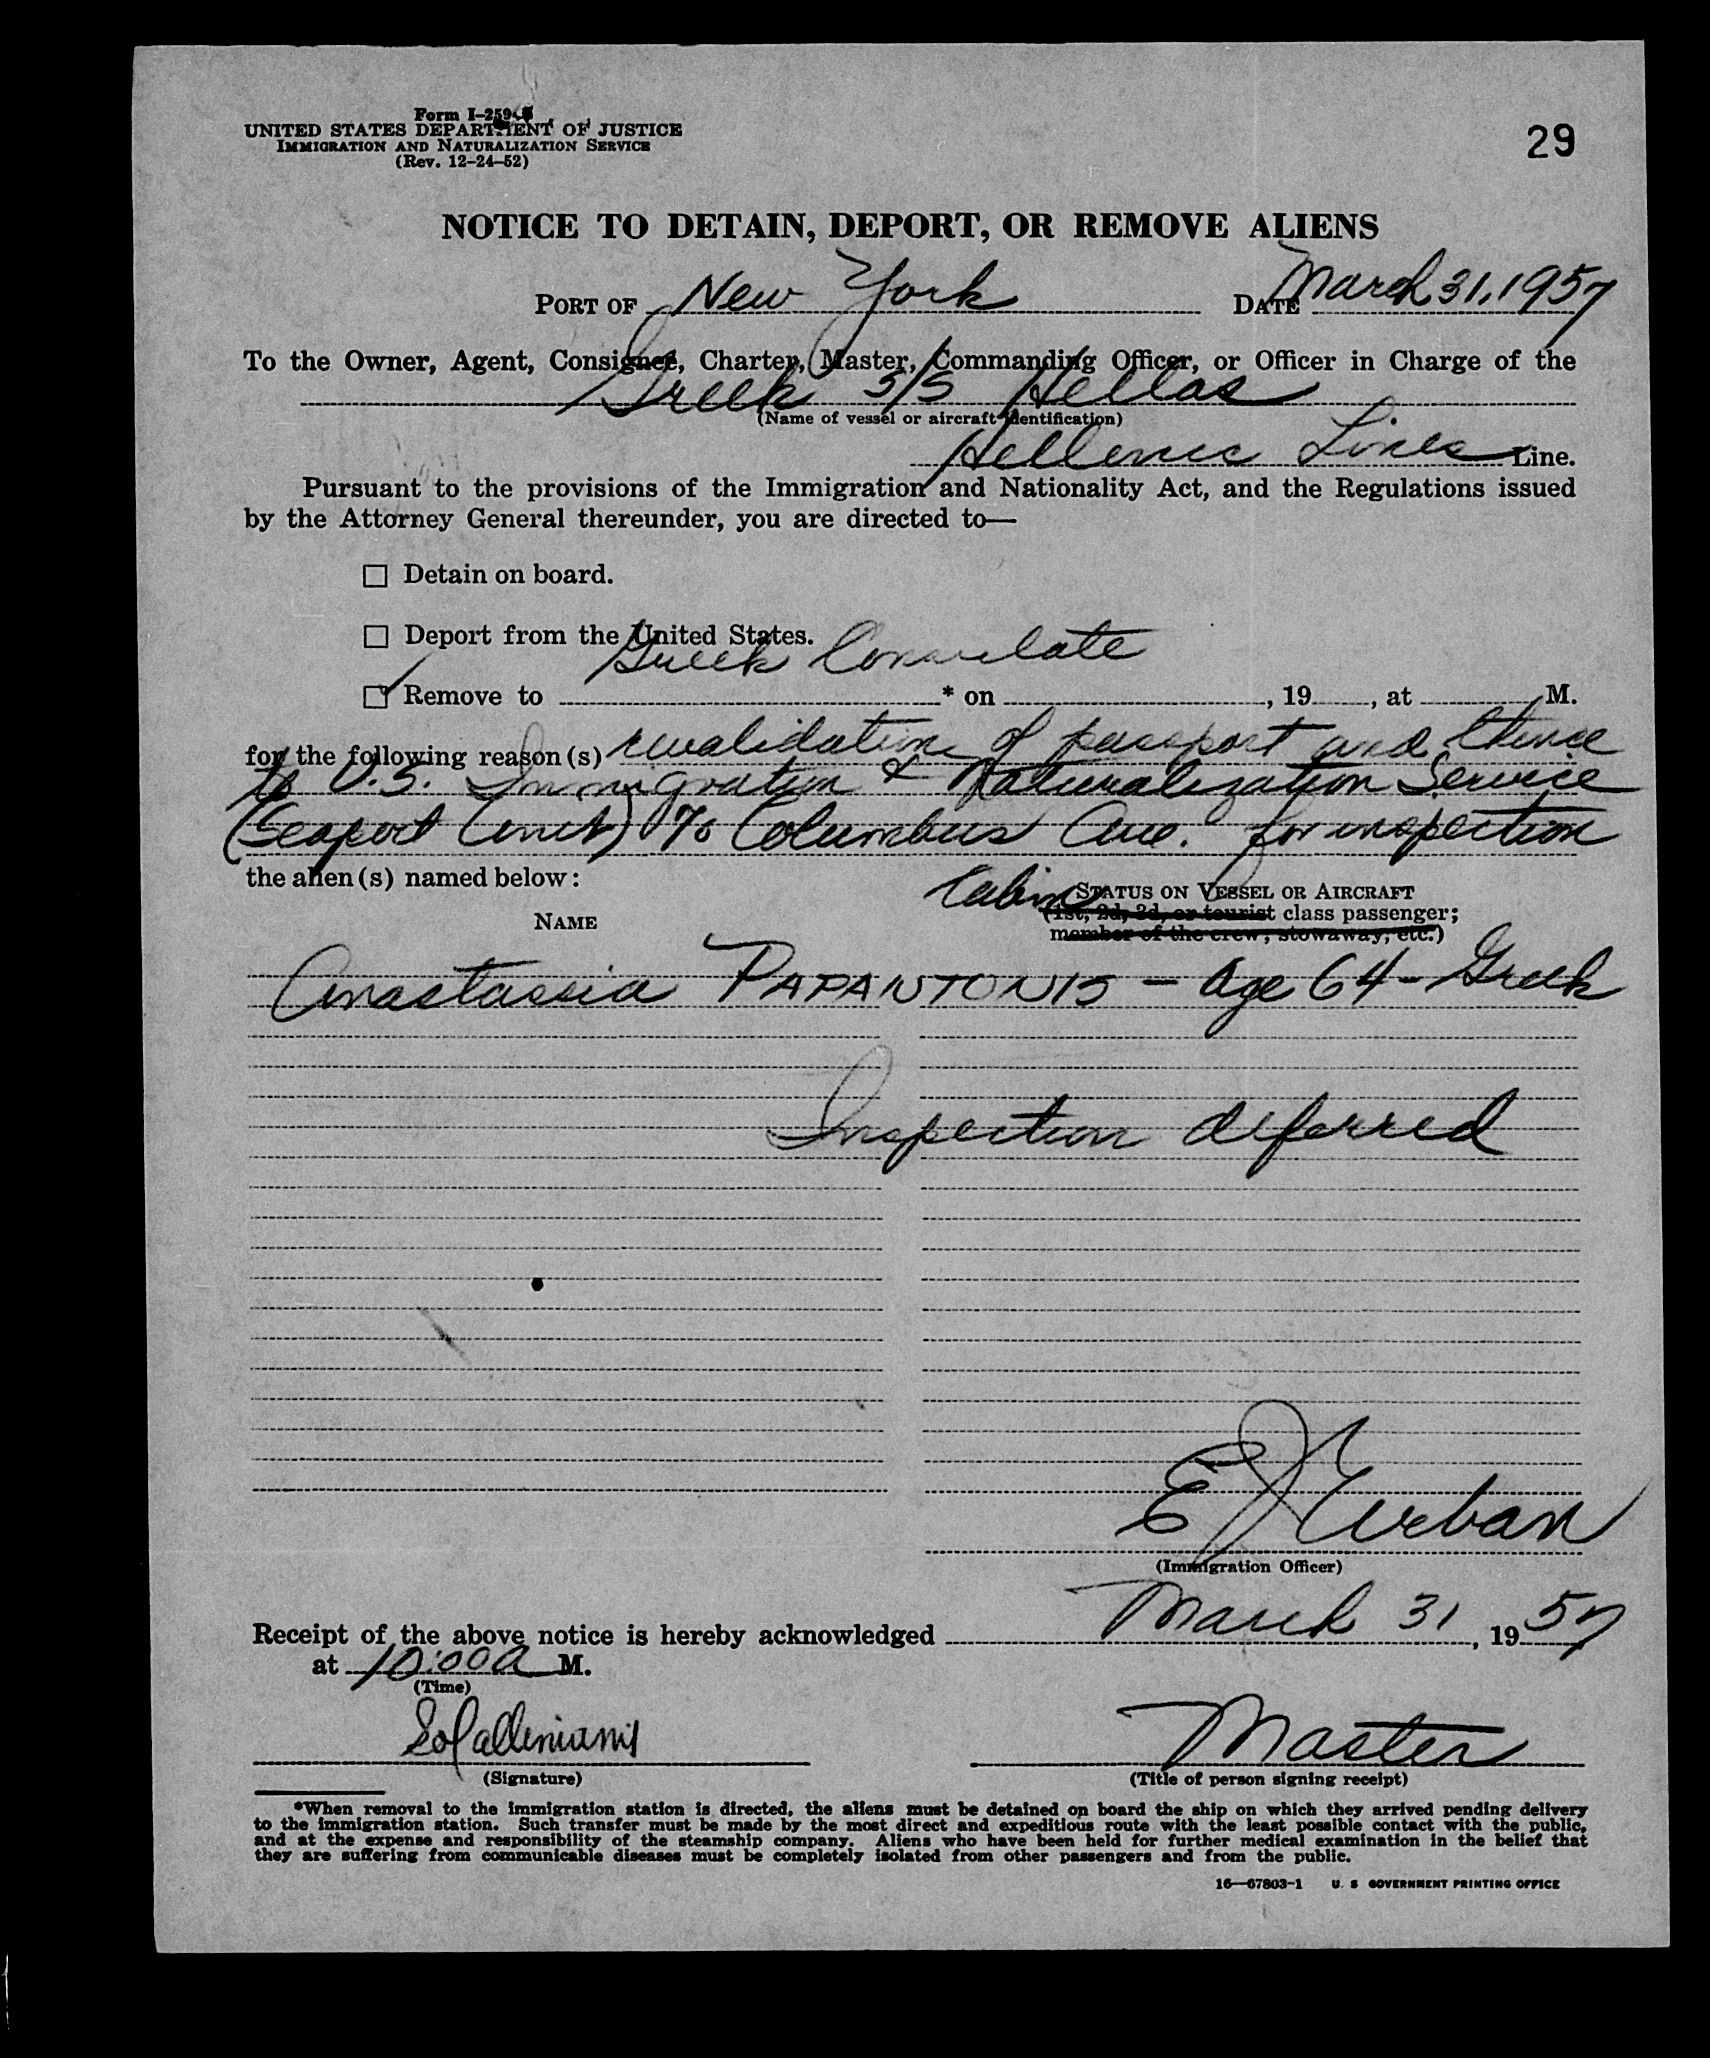 Form I-259
UNITED STATES DEPARTMENT OF JUSTICE
IMMIGRATION AND NATURALIZATION SERVICE
(Rev. 12-24-52)
29
NOTICE TO DETAIN, DEPORT, OR REMOVE ALIENS
PORT OF New York DATE March 31, 1957
To the Owner, Agent, Consignee, Charter, Master, Commanding Officer, or Officer in Charge of the
Greek S/S Hellas
(Name of vessel or aircraft identification)
Hellenic Lines Line.
Pursuant to the provisions of the Immigration and Nationality Act, and the Regulations issued
by the Attorney General thereunder, you are directed to—
☐ Detain on board.
☐ Deport from the United States.
Greek Consulate
☑ Remove to * on , 19 , at M.
for the following reason(s) revalidation of passport and thence
to U.S. Immigration & Naturalization Service
(Seaport Unit) 70 Columbus Ave. for inspection
the alien(s) named below:
Cabin STATUS ON VESSEL OR AIRCRAFT
NAME (1st, 2d, 3d, or tourist class passenger;
member of the crew, stowaway, etc.)
Anastassia PAPANTONIS - Age 64 - Greek
Inspection deferred
E J Urban
(Immigration Officer)
Receipt of the above notice is hereby acknowledged March 31, 1957
at 10:00 A M.
(Time)
Master
(Signature) (Title of person signing receipt)
*When removal to the immigration station is directed, the aliens must be detained on board the ship on which they arrived pending delivery
to the immigration station. Such transfer must be made by the most direct and expeditious route with the least possible contact with the public,
and at the expense and responsibility of the steamship company. Aliens who have been held for further medical examination in the belief that
they are suffering from communicable diseases must be completely isolated from other passengers and from the public.
16—67803-1 U. S GOVERNMENT PRINTING OFFICE